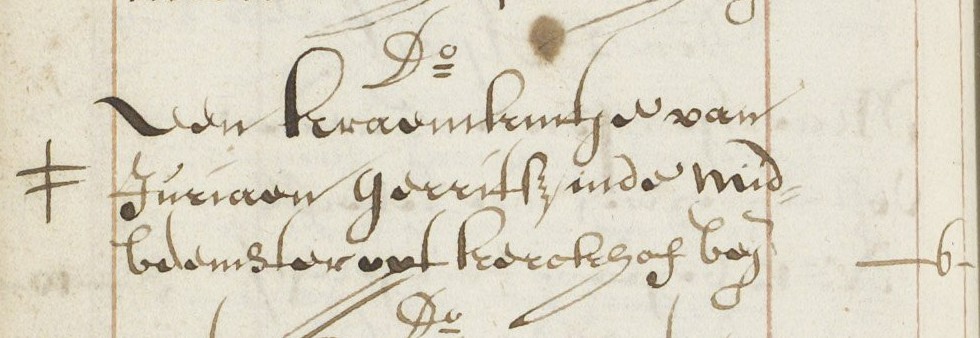 Do
Een kraemkintge van
Juriaen Gerritsz inde Mid=
beemster opt kerckhof beg
6-
Do